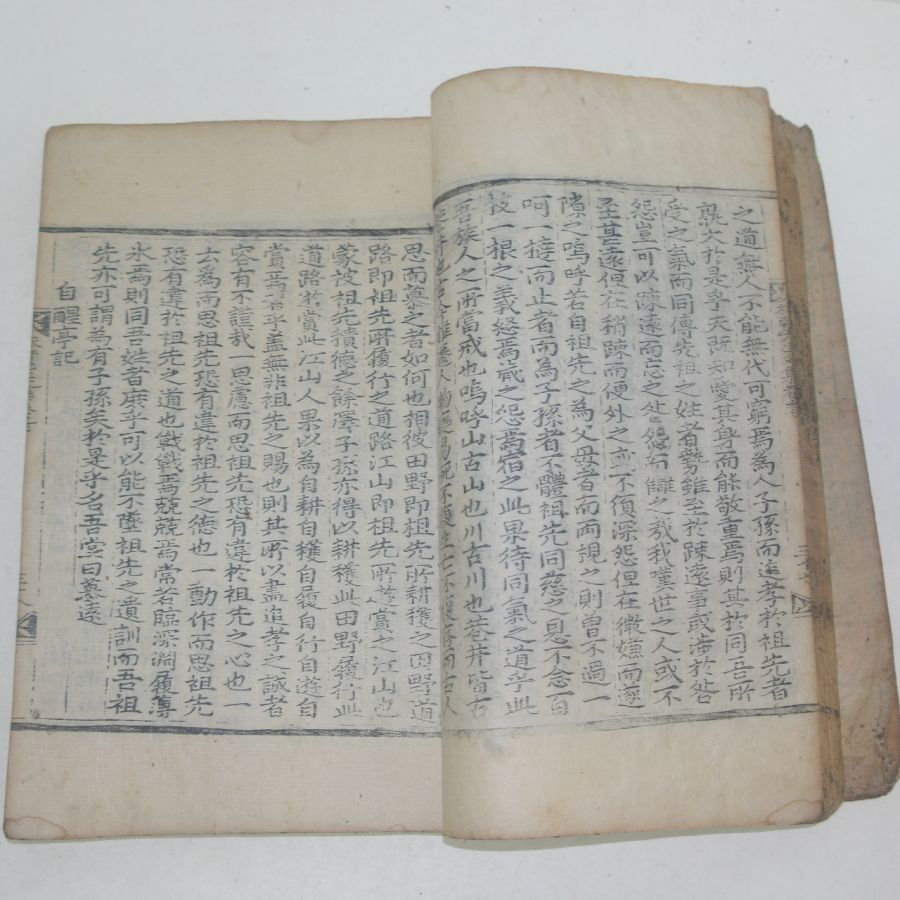 之道無人不能無代可窮焉為人子孫而追孝於祖先者
孰大於是乎夫既知愛其身而能敬重焉則其於同吾所
受之氣而同傳先祖之姓者勢雖至於踈遠事或涉於咎
怨豈可以踈遠而忘之咎怨而讎之哉我瞠世之人或不
至甚遠但在稍踈而便外之亦不須深怨但在微嫌而遂
隙之嗚呼若自祖先之為父母者而兩視之則曾不過一
呵一撻而止者而為子孫者不體祖先同慈之恩不念百
枝一根之義怒焉藏之怨焉宿之此果待同氣之道乎此
吾族人之所當戒也嗚呼山古山也川古川也巷井皆古
思而慕之者如何也相彼田野即祖先所耕穫之田野道
路即祖先所履行之道路江山即祖先所遊賞之江山也
蒙被祖先積德之餘澤子孫亦得以耕穫此田野履行此
道路遊賞此江山人果以為自耕自穫自履自行自遊自
賞焉者乎盖無非祖先之賜也則其所以盡追孝之誠者
容有不謹哉一思慮而思祖先恐有違於祖先之心也一
云為而思祖先恐有違於祖先之德也一動作而思祖先
恐有違於祖先之道也戰戰焉兢兢焉常若臨深淵履薄
氷焉則同吾姓者庶乎可以能不墜祖先之遺訓而吾祖
先亦可謂為有子孫矣於是乎名吾堂曰慕遠
自醒亭記